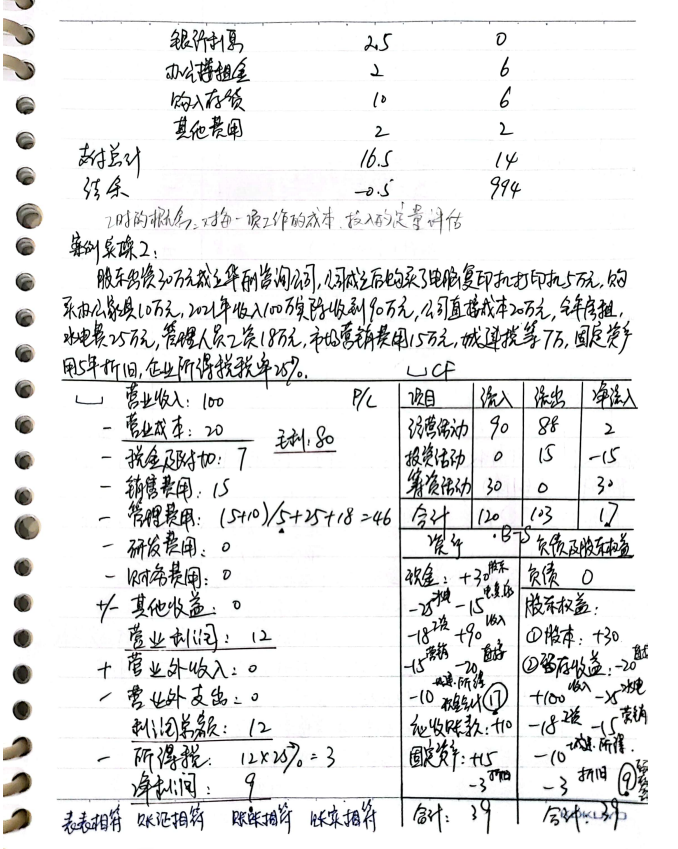 银行利息 2.5 0
办公楼租金 2 6
购入存货 10 6
其他费用 2 2
支付总计 16.5 14
结余 -0.5 994
工时的概念:对每一项工作的成本、投入的定量评估
案例实操2:
股东出资30万元成立华丽咨询公司,公司成立后购买了电脑复印机打印机5万元,购
买办公家具10万元,2021年收入100万实际收到90万元,公司直接成本20万元,全年房租,
水电费25万元,管理人员工资18万元,市场营销费用15万元,城建税等7万,固定资产
用5年折旧,企业所得税税率25%。
营业收入:100 P/L
- 营业成本:20 毛利:80
- 税金及附加:7
- 销售费用:15
- 管理费用:(5+10)/5+25+18=46
- 研发费用:0
- 财务费用:0
+/- 其他收益:0
营业利润:12
+ 营业外收入:0
- 营业外支出:0
利润总额:12
- 所得税:12×25%=3
净利润:9
CF
项目 流入 流出 净流入
经营活动 90 88 2
投资活动 0 15 -15
筹资活动 30 0 30
合计 120 103 17
B-S
资产 负债及股东权益
现金:+30股东 负债 0
-25水电 -15电, 家具 股东权益:
-18工资 +90收入 ①股本:+30
-15营销 -20直接 ②留存收益:-20直接
-10城建.所得 现金合计⑰ +100收入 -25水电
应收账款:+10 -18工资 -15营销
固定资产:+15 -10城建.所得
-3折旧 -3折旧 ⑨
合计:39 合计:39
表表相符 账证相符 账账相符 账实相符